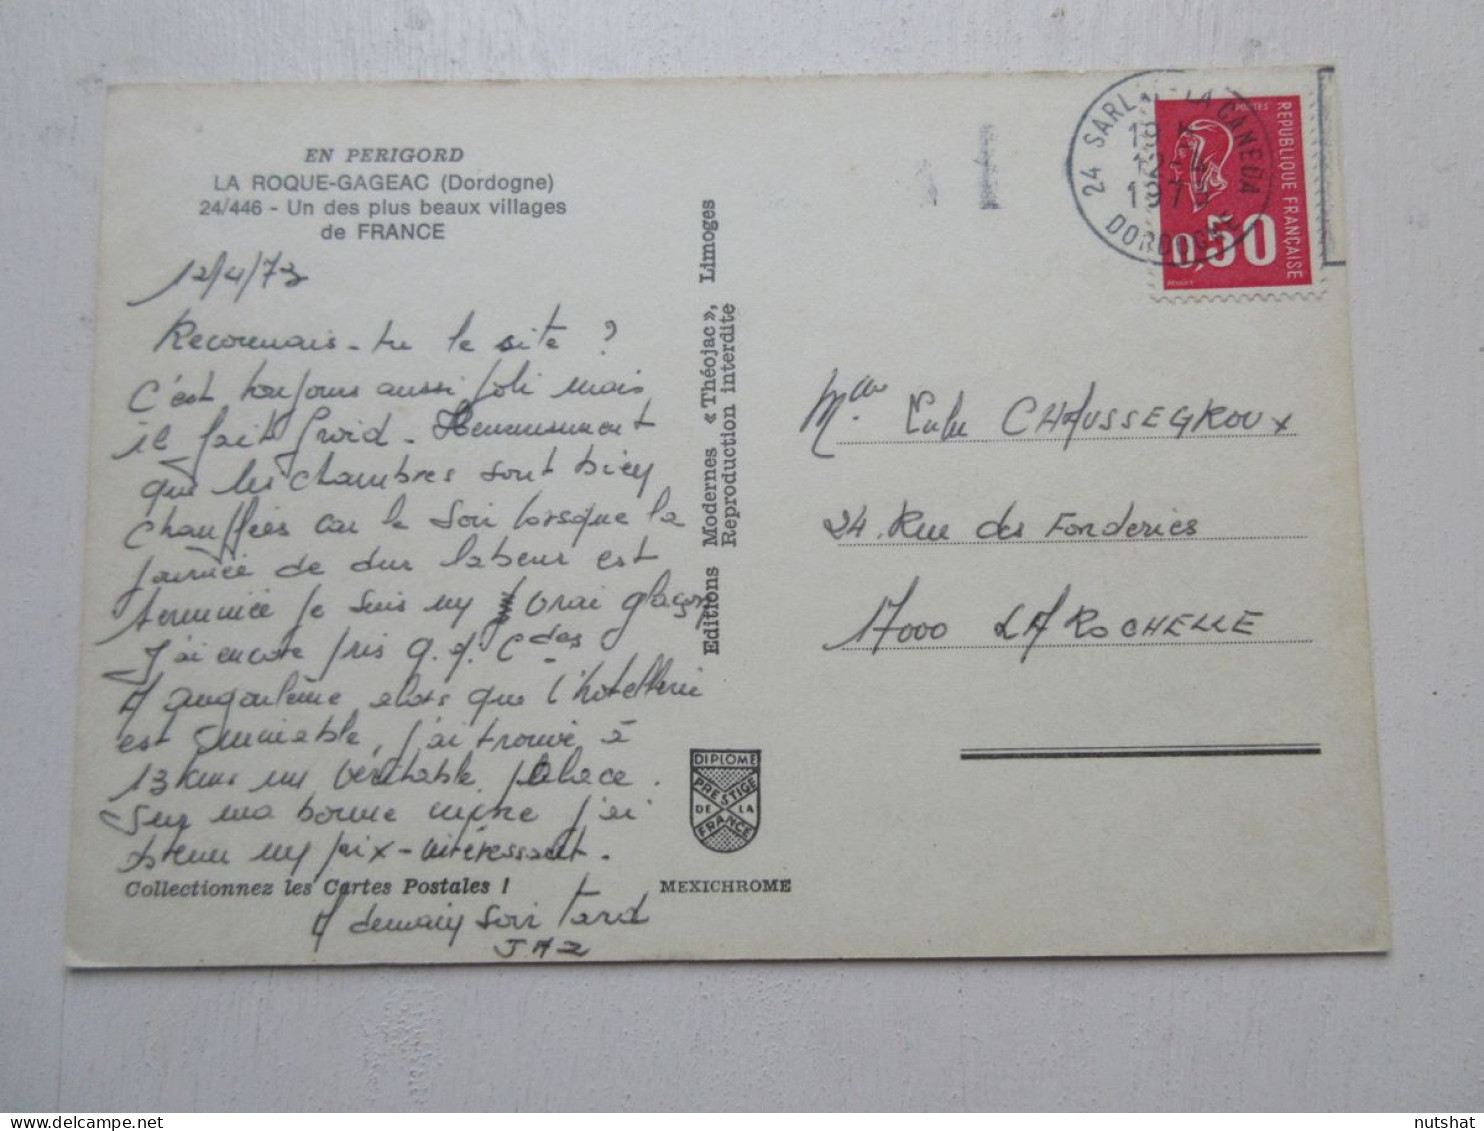 EN PERIGORD
LA ROQUE-GAGEAC (Dordogne)
24/446 - Un des plus beaux villages
de FRANCE
12/4/73
Reconnais-tu le site ?
C'est toujours aussi joli mais
il fait froid - Heureusement
que les chambres sont bien
chauffées car le soir lorsque la
journée de dur labeur est
terminée je suis un vrai glaçon
J'ai encore pris q.q. Cdes
A Angoulême alors que l'hotellerie
est minable, j'ai trouvé à
13 kms un véritable palace.
Sur ma bonne mine j'ai
obtenu un prix-intéressant.
Collectionnez les Cartes Postales !
A demain soir tard
JAZ
Editions Modernes « Théojac », Limoges
Reproduction interdite
DIPLOME
PRESTIGE
DE LA
FRANCE
MEXICHROME
24 SARLAT-LA CANEDA
DORDOGNE
REPUBLIQUE FRANÇAISE
POSTES
0,50
Mlle Lulu CHAUSSEGROUX
24. Rue des Fonderies
17000 LA ROCHELLE
delcampe.net
nutshat